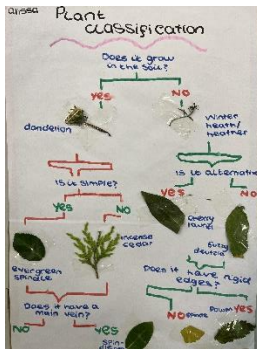 arissa
Plant
Classification
Does it grow
in the soil?
Yes
NO
dandelion
Winter
heath/
heather
Is it simple?
Is it alternate
Yes
NO
Yes
NO
cherry
laurel
incense
cedar
evergreen
spindle
fuzzy
deutzia
Does it have rigid
edges?
Does it have a
main vein?
NO
Yes
NO
Yes
spin-